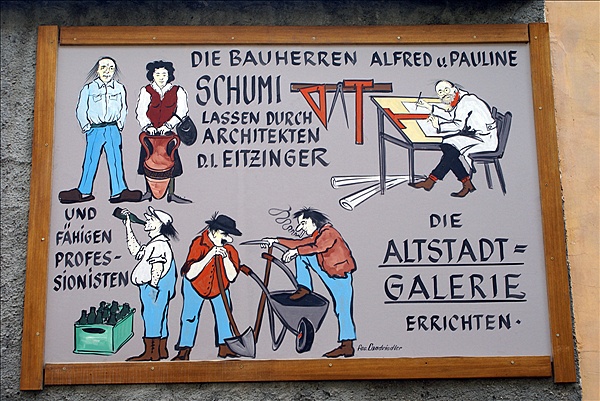 DIE BAUHERREN ALFRED u. PAULINE
SCHUMI
LASSEN DURCH
ARCHITEKTEN
D.I. EITZINGER
UND
FÄHIGEN
PROFES-
SIONISTEN
DIE
ALTSTADT=
GALERIE
ERRICHTEN.